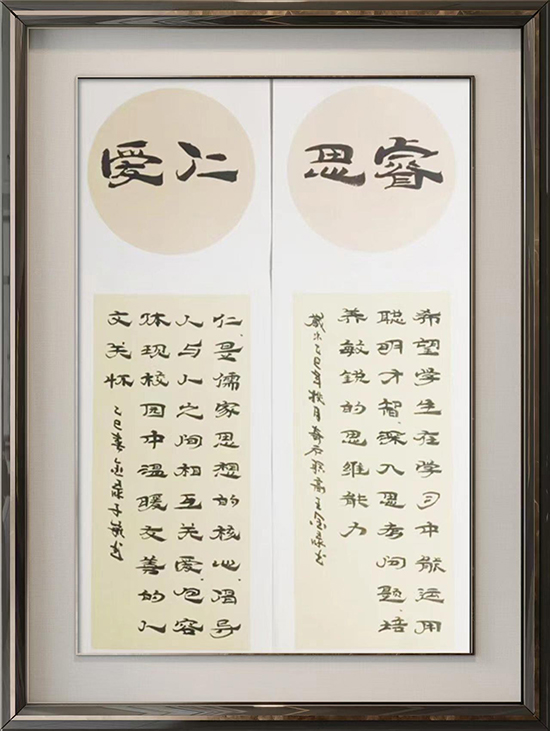 睿思
希望学生在学习中能运用
聪明才智,深入思考问题,培
养敏锐的思维能力
岁末乙巳年
仁爱
仁,是儒家思想的核心,倡导
人与人之间相互关爱,包容
体现校园中温暖友善的人
文关怀
乙巳春